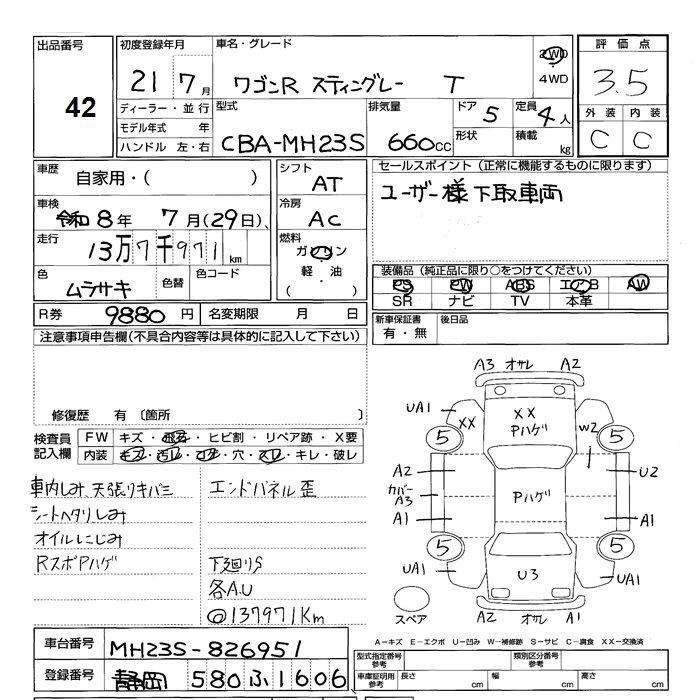 出品番号
42
初度登録年月
21 7 月
ディーラー・並行
モデル年式 年
ハンドル 左・右
車名・グレード
ワゴンR スティングレー T
2WD
4WD
型式
CBA-MH23S
排気量
660cc
ドア 5
形状
定員 4 人
積載 kg
評価点
3.5
外装 内装
C C
車歴
自家用・( )
車検
令和8年 7月(29日)
走行
13万7千971 km
色
ムラサキ
色替
色コード
シフト
AT
冷房
AC
燃料
ガソリン
軽・油
( )
セールスポイント(正常に機能するものに限ります)
ユーザー様下取車両
装備品(純正品に限り○をつけてください)
PS PW ABS エアB AW
SR ナビ TV 本革
新車保証書
有・無
後日品
R券 9880 円
名変期限 月 日
注意事項申告欄(不具合内容等は具体的に記入して下さい)
修復歴 有〔箇所 〕
検査員
記入欄
FW キズ・ ・ヒビ割・リペア跡・X要
内装 キズ・汚レ・コゲ・穴・スレ・キレ・破レ
車内しみ 天張りキバミ
シートヘタリしみ
オイルにじみ
RスポPハゲ
エンドパネル歪
下廻りS
各A.U
@137971Km
A3 オサレ A2
UA1
XX
XX
Pハゲ
W2
5
5
A2
カバー
A3
A1
Pハゲ
U2
A1
5
5
UA1
U3
UA1
スペア
A2 オサレ A1
A-キズ E-エクボ U-凹み W-補修跡 S-サビ C-腐食 XX-交換済
車台番号
MH23S-826951
登録番号
静岡 580 ふ 1606
型式指定番号
参考
類別区分番号
参考
車庫証明用
参考
長さ cm
幅 cm
高さ cm